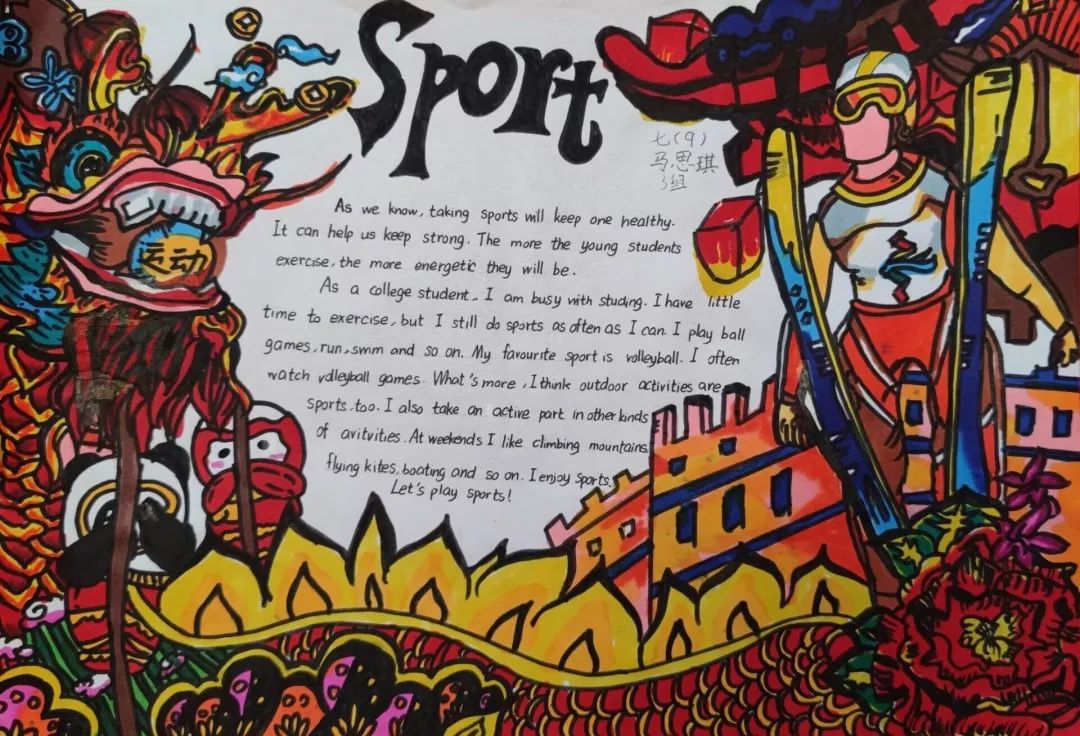 Sport
七(9)
马思琪
3组
As we know, taking sports will keep one healthy.
It can help us keep strong. The more the young students
exercise, the more energetic they will be.
As a college student, I am busy with studing. I have little
time to exercise, but I still do sports as often as I can. I play ball
games, run, swim and so on. My favourite sport is volleyball. I often
watch volleyball games. What's more, I think outdoor activities are
sports, too. I also take an active part in other kinds
of avitvities. At weekends I like climbing mountains,
flying kites, boating and so on. I enjoy sports.
Let's play sports!
运动